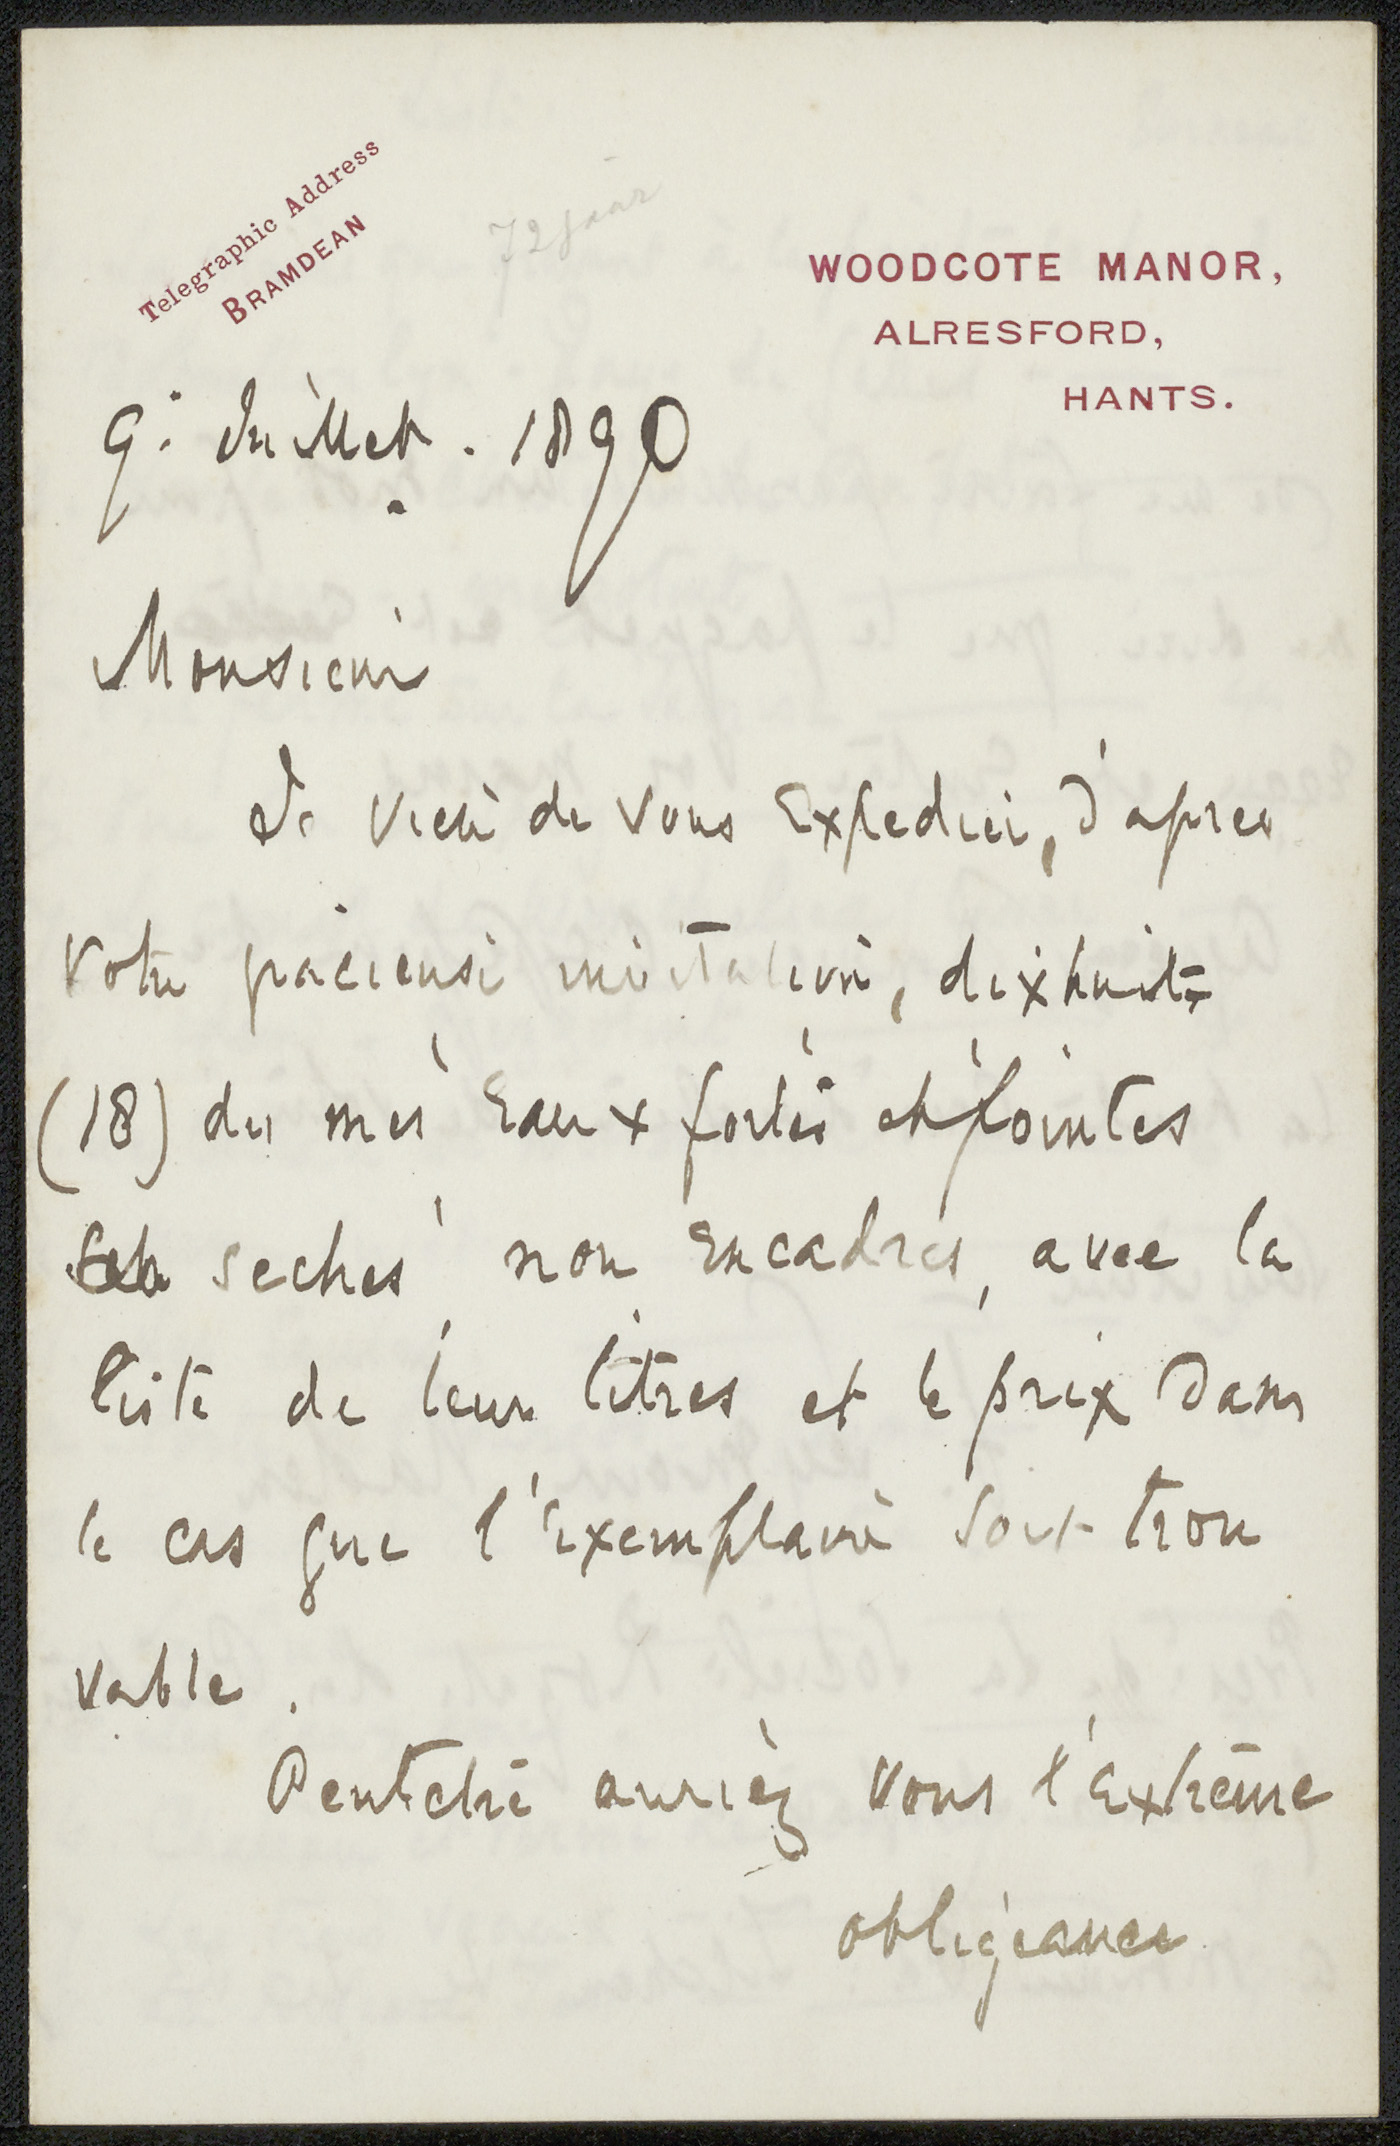 Telegraphic Address
BRAMDEAN
72 jaar
WOODCOTE MANOR,
ALRESFORD,
HANTS.
9. Juillet. 1890
Monsieur
Je viens de vous Expedier, d'apres
votre gracieuse invitation, dixhuit
(18) des mes Eaux fortes et pointes
seches non Encadres, avec la
liste de leur titres et le prix dans
le cas que l'Exemplaire soit trou
vable.
Peutetre auriez vous l'Extrême
obligeance